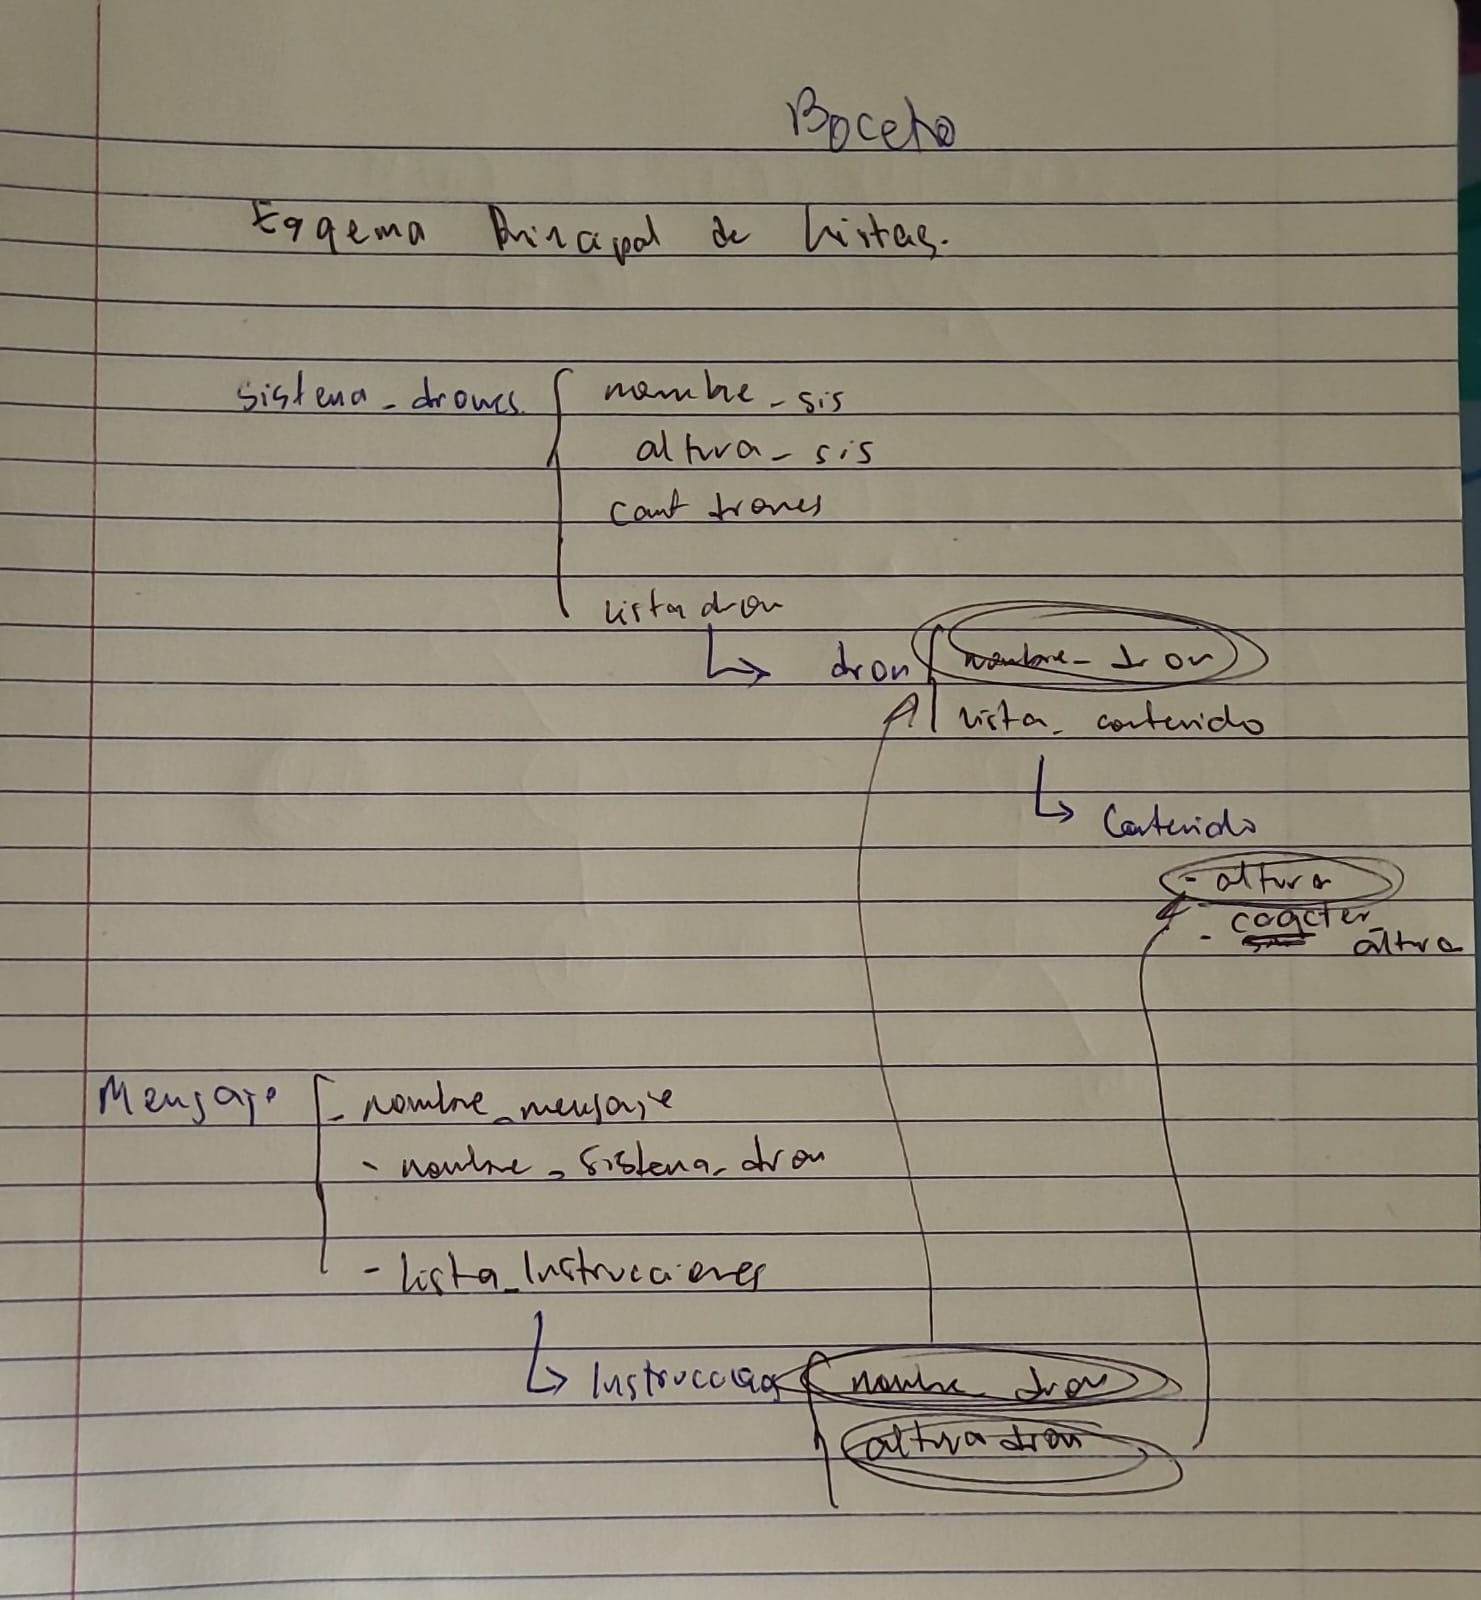 Boceto
Esqema Principal de Listas.
sistema_drones
nombre_sis
altura_sis
cant drones
lista dron
dron nombre_dron
lista_contenido
Contenido
- altura
- caacter
altura
Mensaje - nombre_mensaje
- nombre_sistema_dron
- lista_Instrucciones
nombre_dron
altura dron